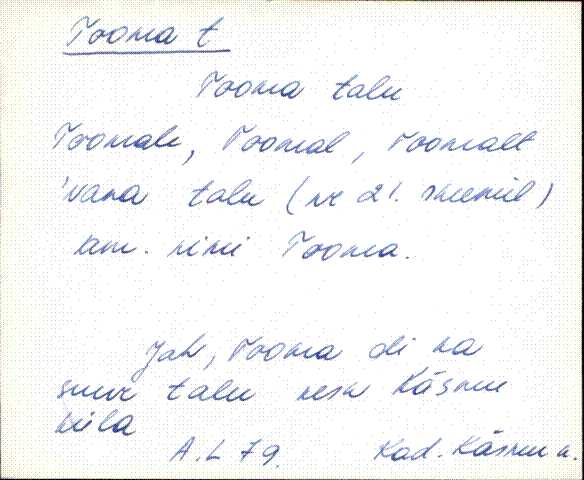 Tooma t
Tooma talu
Toomale, Toomal, Toomalt
'vana talu (nr 21. skeemil)
nim. nimi Tooma.
Jah, Tooma oli ka
suur talu kesk Käsmu
küla
A.L 79. Kad. Käsmu k.